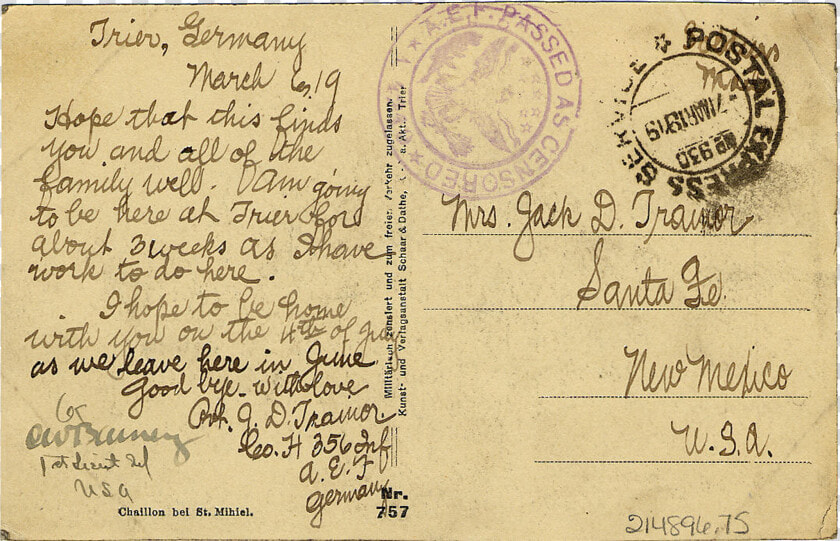 Trier, Germany
March 6, 19
Hope that this finds
you and all of the
family well. I am going
to be here at Trier for
about 3 weeks as I have
work to do here.
I hope to be home
with you on the 4th of July
as we leave here in June
Good bye with love
Pvt. J. D. Trainor
Co. H 356 Inf
A. E. F
Germany
1st Lieut Inf
USA
Chaillon bei St. Mihiel.
Nr.
757
Militärisch zensiert und zum freien Verkehr zugelassen
Kunst- und Verlagsanstalt Schaar & Dathe, a. Akt., Trier
A.E.F. PASSED AS CENSORED
POSTAL EXPRESS SERVICE
7 MAR 1919
930
Mrs. Jack D. Trainor
Santa Fe.
New Mexico
U.S.A.
214896.75